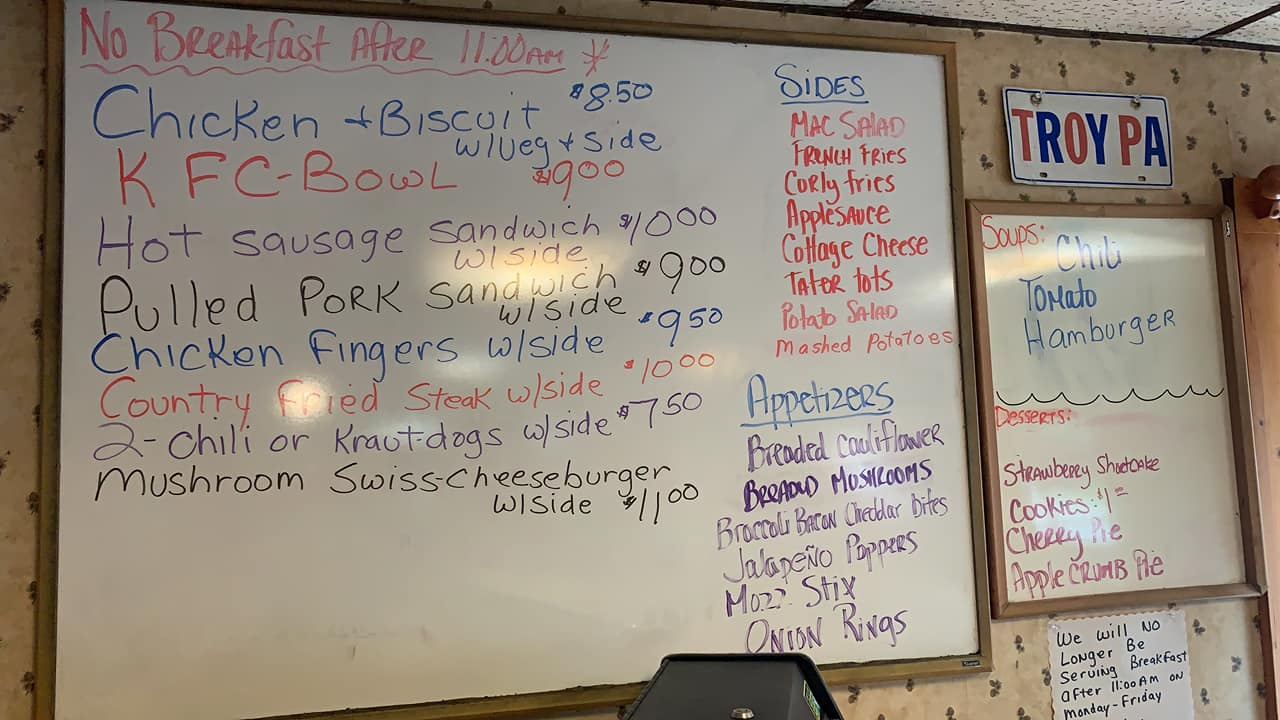 No Breakfast After 11:00AM
Chicken + Biscuit $8.50
w/veg + side
KFC-Bowl $9.00
Hot sausage sandwich $10.00
w/side
Pulled Pork sandwich $9.00
w/side
Chicken fingers w/side $9.50
Country fried Steak w/side $10.00
2-chili or Kraut-dogs w/side $7.50
Mushroom Swiss-Cheeseburger
w/side $11.00
Sides
Mac Salad
French Fries
Curly fries
Applesauce
Cottage Cheese
Tater tots
Potato Salad
Mashed Potatoes
Appetizers
Breaded Cauliflower
Breaded Mushrooms
Broccoli Bacon Cheddar bites
Jalapeño Poppers
Mozz. Stix
Onion Rings
TROY PA
Soups:
Chili
Tomato
Hamburger
Desserts:
Strawberry Shortcake
Cookies: $1=
Cherry Pie
Apple Crumb Pie
We will No
Longer Be
Serving Breakfast
after 11:00AM on
Monday-Friday